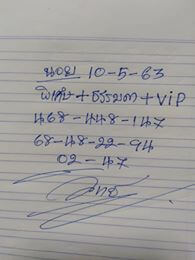 ฮานอย 10-5-63
พิเศษ + ธรรมดา + VIP
468-448-147
68-48-22-94
02-47